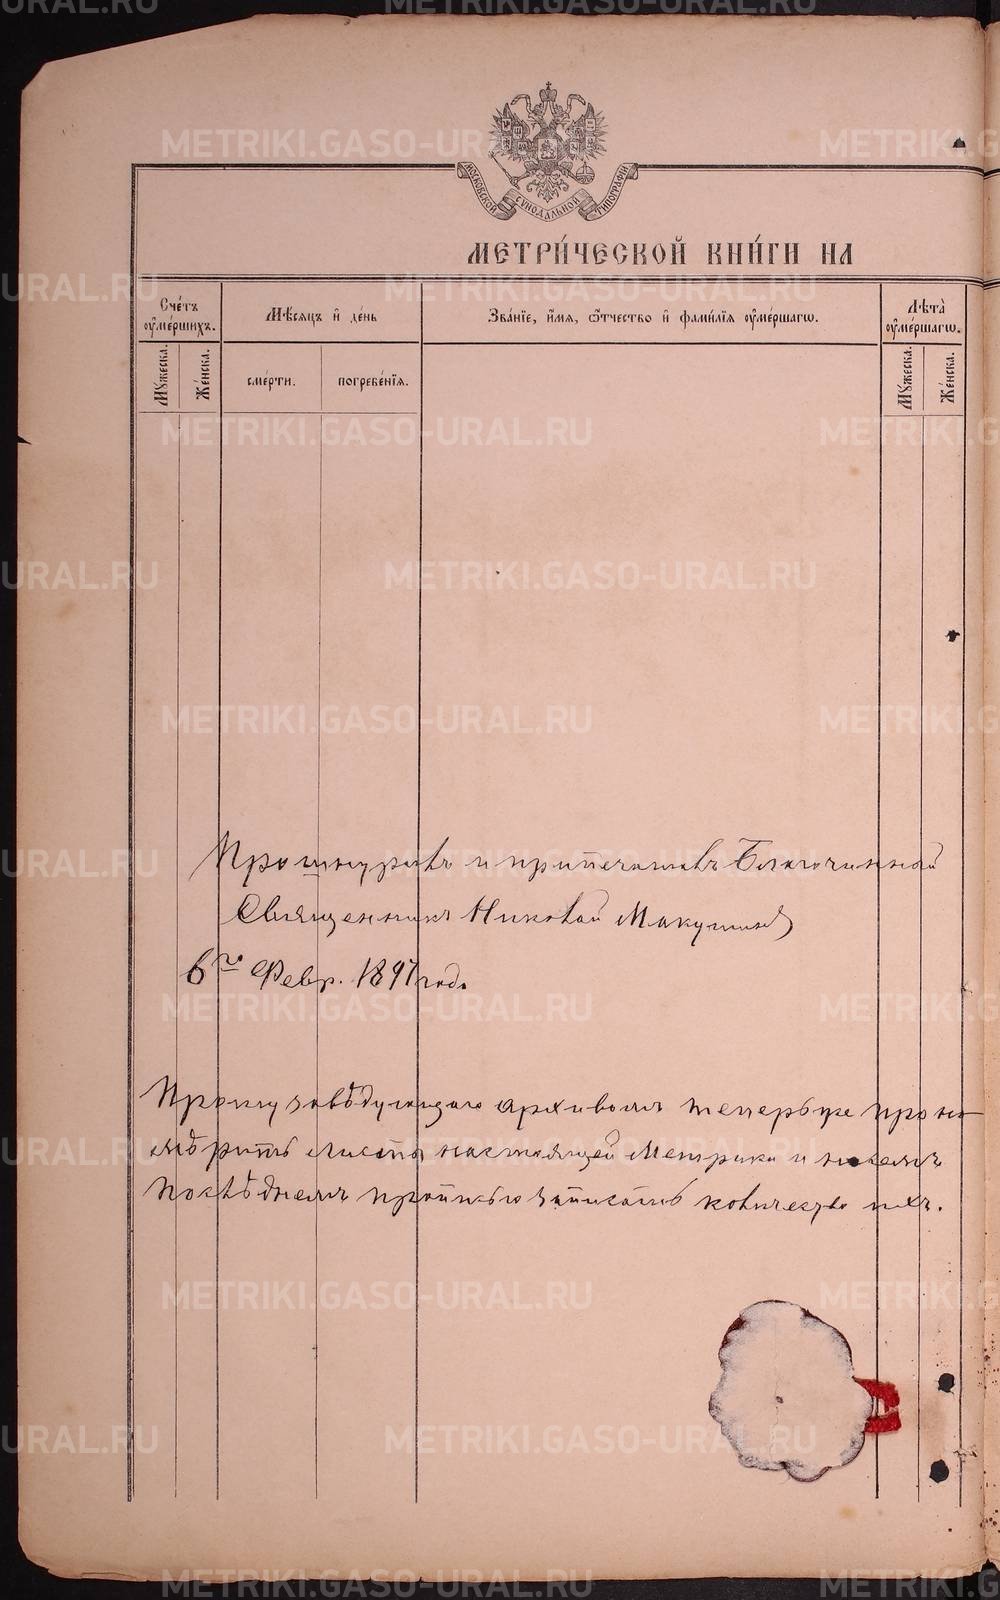 METRIKI.GASO-URAL.RU
МОСКОВСКОЙ СУНОДАЛЬНОЙ ТИПОГРАФІИ
МЕТРИ́ЧЕСКОЙ КНИ́ГИ НА
Сче́тъ ᲂу҆ме́ршихъ.
Мѣ́сяцъ и҆ де́нь
Зва́нїе, и҆́мя, ѻ҆́тчество и҆ фами́лїя ᲂу҆ме́ршагѡ.
Лѣ́та ᲂу҆ме́ршагѡ.
Му́жеска.
Же́нска.
сме́рти.
погребе́нїя.
Му́жеска.
Же́нска.
Прошнуровъ и припечатавъ Благочинный
Священникъ Николай Макушинъ
6го Февр. 1897 года
Прошу завѣдующаго архивомъ теперь же про
мѣрить листы настоящей Метрики и на семъ
Послѣднемъ прописью записать количество ихъ.